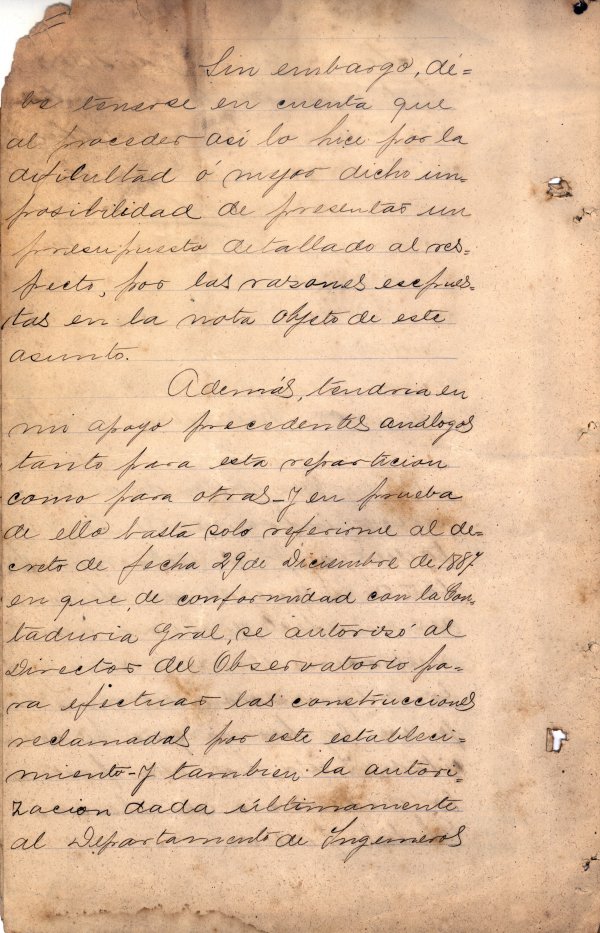 Sin embargo, dé=
be tenerse en cuenta que
al proceder así lo hice por la
dificultad ó mejor dicho im-
posibilidad de presentar un
presupuesto detallado al res-
pecto, por las razones espues-
tas en la nota objeto de este
asunto.
Además, tendria en
mi apoyo precedentes análogos
tanto para esta reparticion
como para otras-y en prueba
de ello basta solo referirme al de-
creto de fecha 29 de Diciembre de 1887
en que, de conformidad con la Con-
taduria Gral, se autorizó al
Director del Observatorio pa-
ra efectuar las construcciones
reclamadas por este estableci-
miento-y tambien la autori-
zacion dada últimamente
al Departamento de Ingenieros